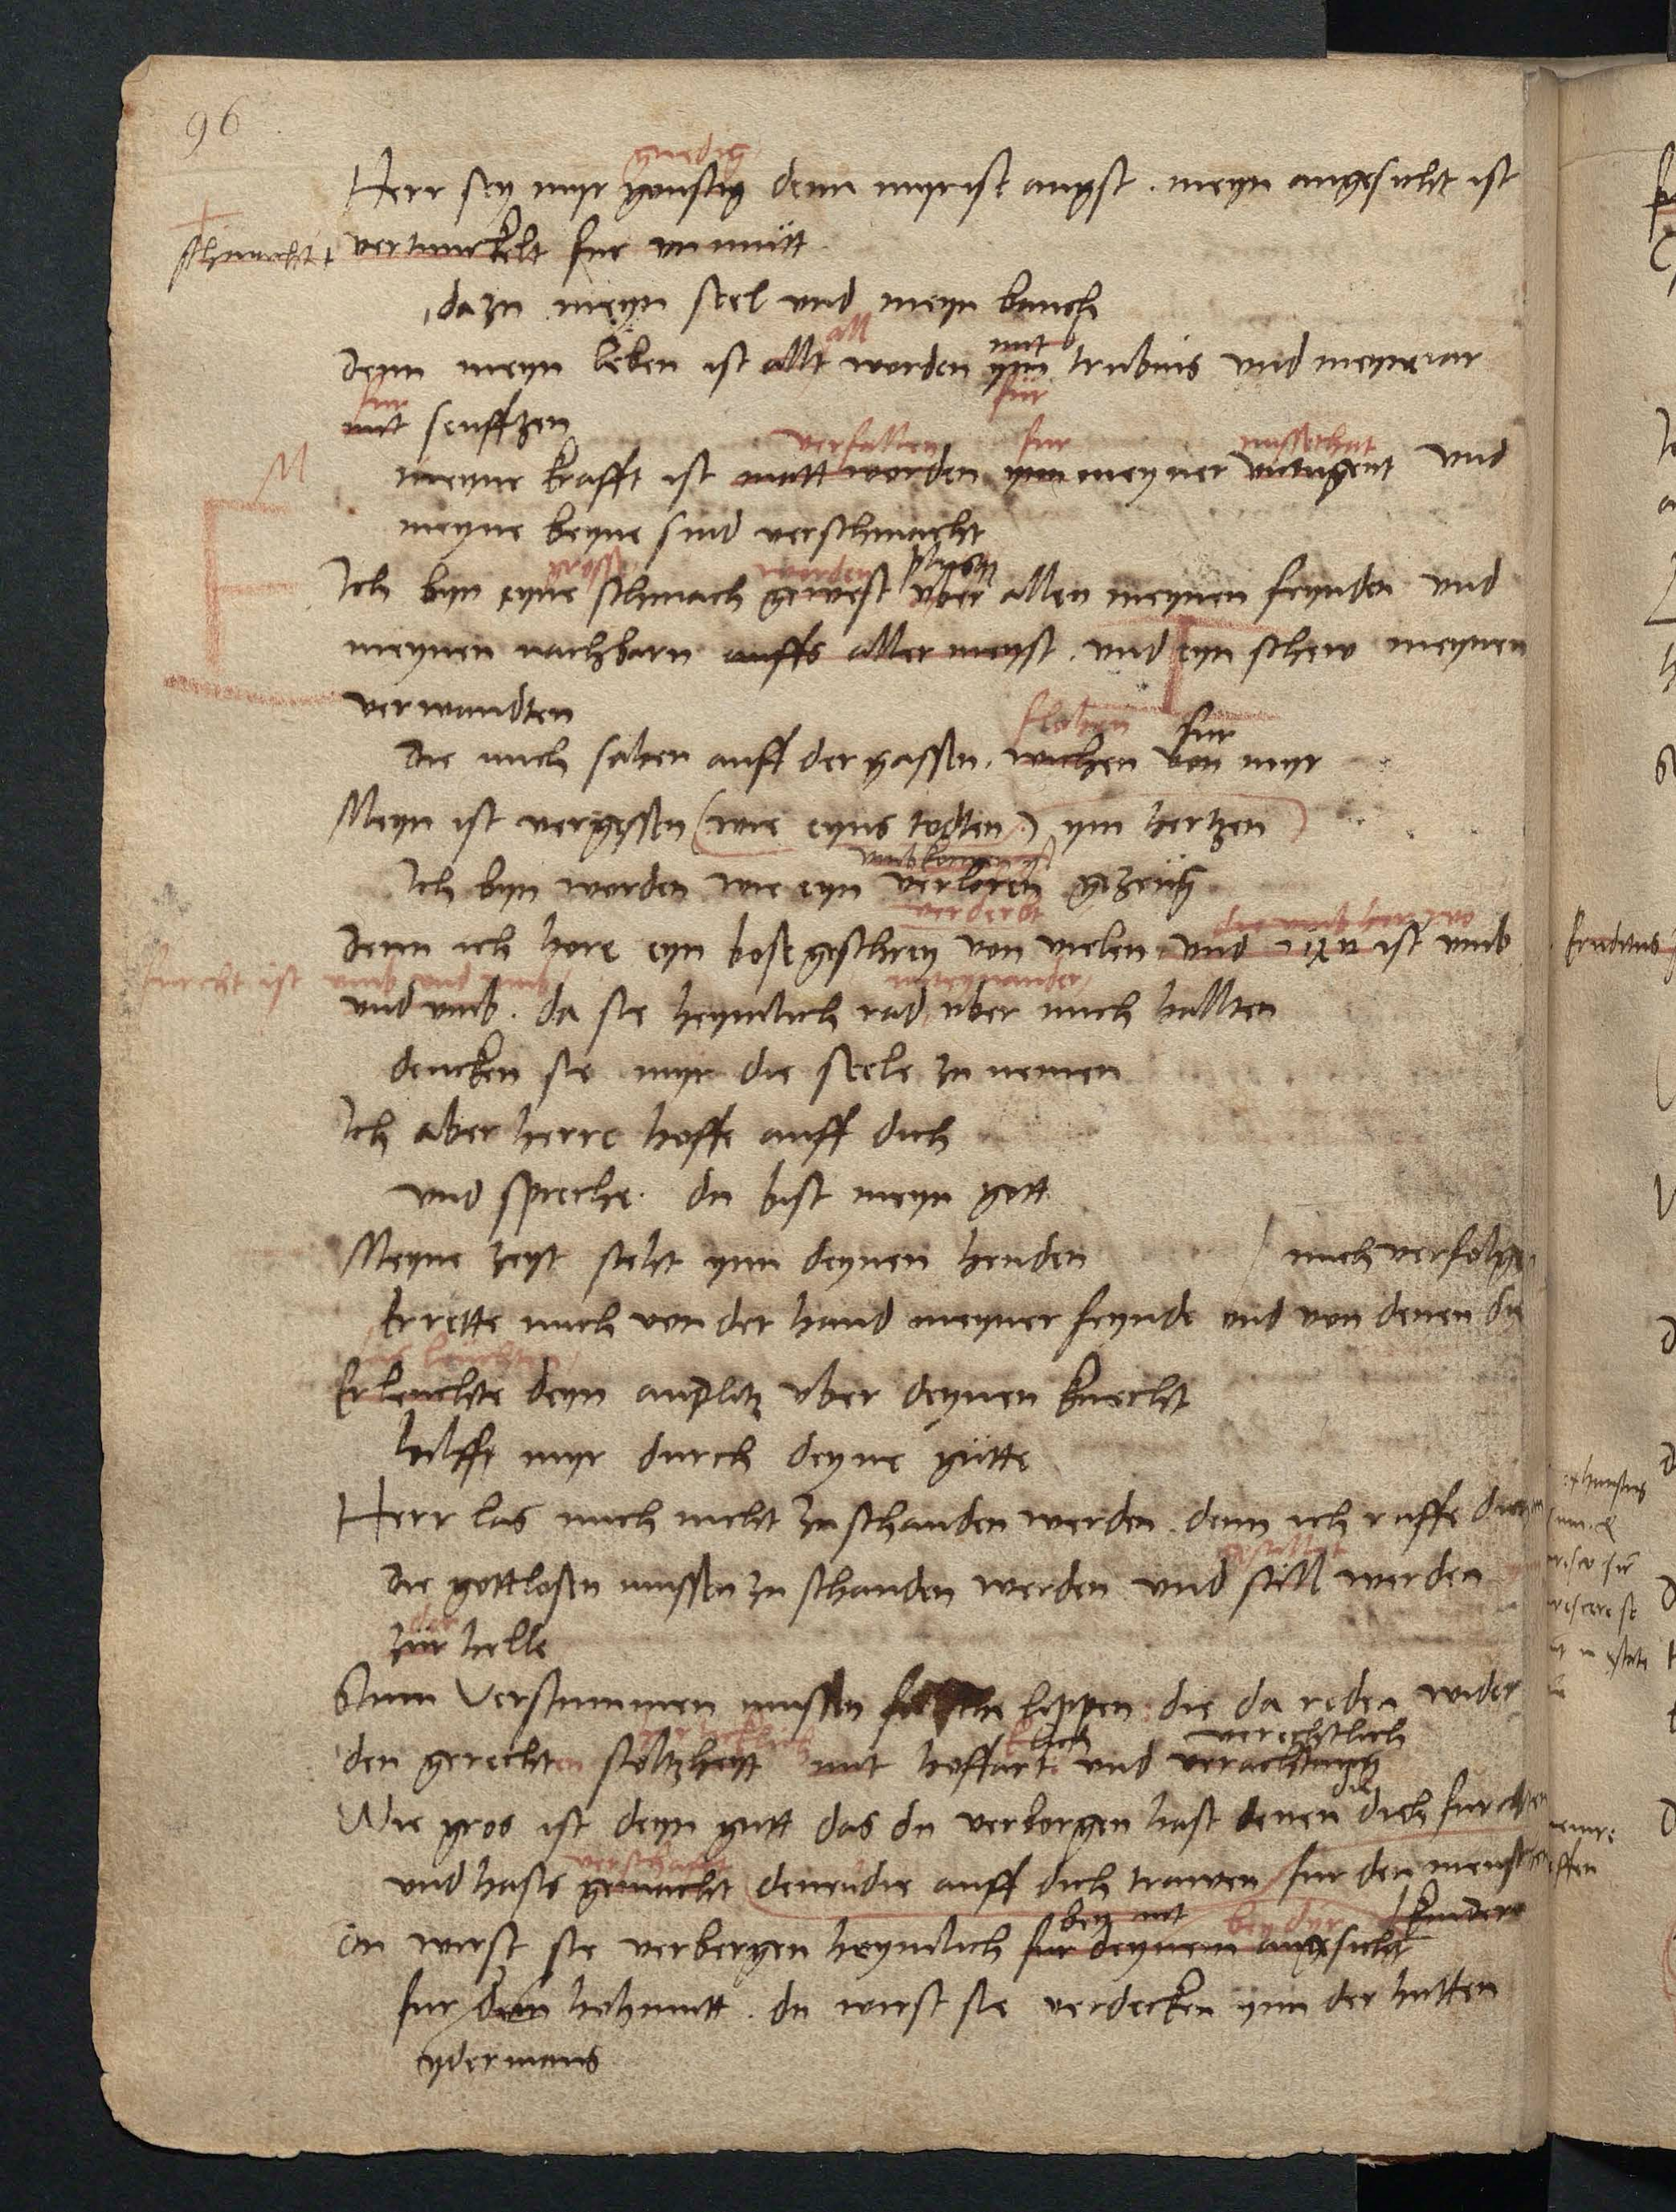 96
gnedig
Herr sey myr gonstig denn myr ist angst . meyn angesicht ist
vertunckelt fur unmutt
dazu meyn seel und meyn bauch
all mit
denn meyn leben ist allt worden ynn trubnis und meyne iar
fur fur
mit seufftzen
verfallen fur
M
meyne krafft ist matt worden ynn meyner und
meyne beyne sind verschmacht
worden
Ich byn eyne schmach gewest uber allen meynen feynden und
meynen nachbarn auffs aller meyst . und eyn schew meynen
verwandten
flohen fur
die mich sahen auff der gassen . wichen von myr
Meyn ist vergessen (wie eyns todten) ym hertzen
Ich byn worden wie eyn verloren gezeug
verderbt
denn ich hore eyn bose geschrey von vielen und ist umb
furcht ist umb und umb
und umb . da sie heymlich rad uber mich hallten
dencken sie myr die seele zu nemen
Ich aber herre hoffe auff dich
und spreche . du bist meyn gott
Meyne zeyt steht ynn deynen henden
mich verfolgen
Errette mich von der hand meyner feynde und von denen die
las leuchten
Erleuchte deyn andlitz uber deynen knecht
hilff myr durch deyne gutte
Herr las mich nicht zu schanden werden . denn ich ruffe dich
die gottlosen mussen zu schanden werden und still werden
der
zur helle
Verstummen mussen falsche lippen die da reden wider
lich verechtlich
den gerechten stoltzheyt mit hoffart und verachtung
die
Wie gros ist deyn gutt das du verborgen hast denen dich furchten
und hasts gemacht denen die auff dich trawen fur den menschen
bey dyr kinder
Du wirst sie verbergen heymlich fur deynem angesicht
fur dem hohmutt . du wirst sie verdecken ynn der hutten
ydermans